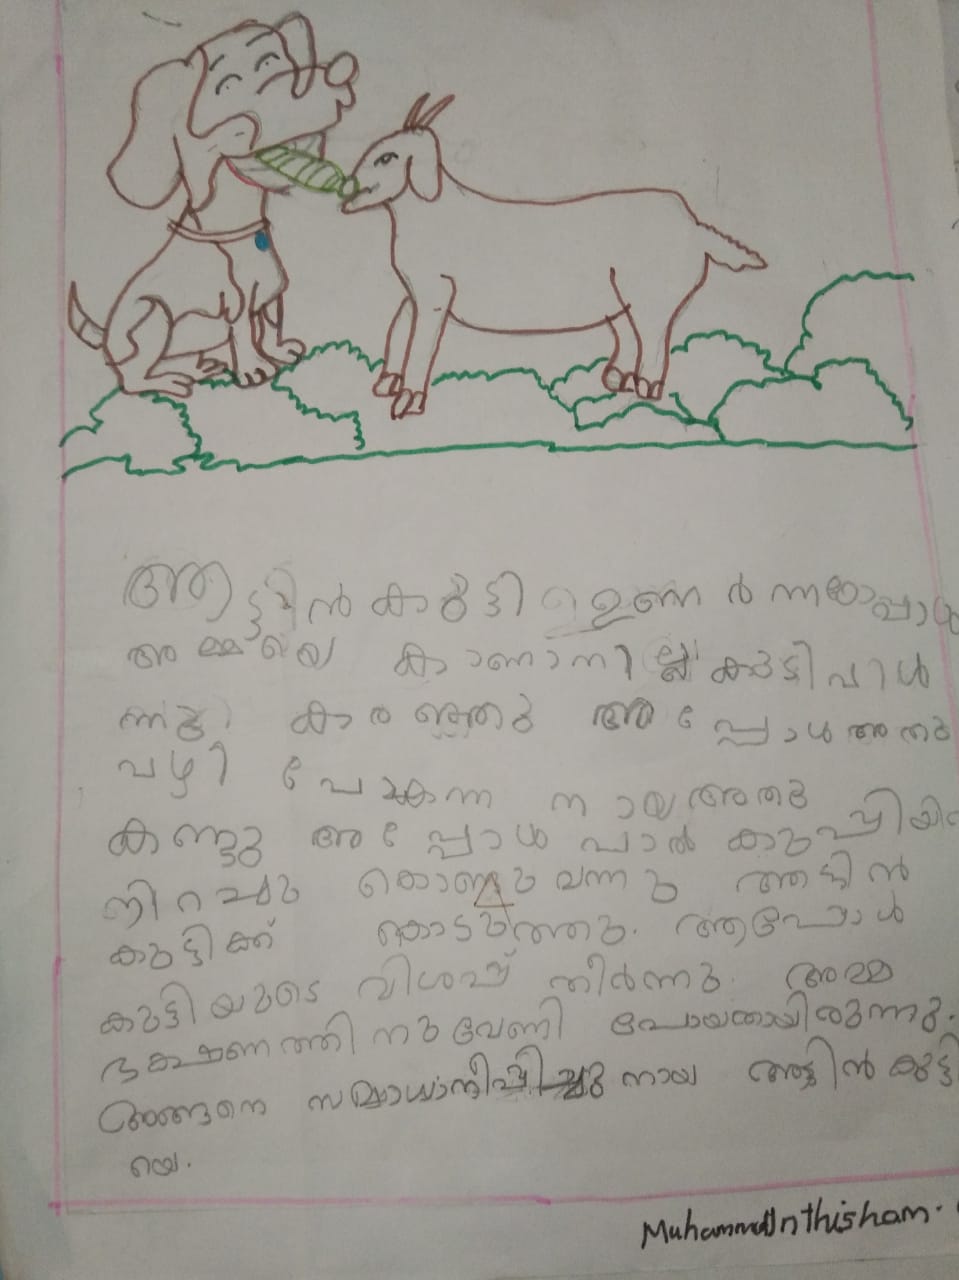 ആട്ടിൻകുട്ടി ഉണർന്നപ്പോൾ
അമ്മയെ കാണാനില്ല കുട്ടി
കരഞ്ഞു അപ്പോൾ അതു
വഴി പോകുന്ന നായഅതു
കണ്ടു അപ്പോൾ പാൽ കുപ്പിയിൽ
നിറച്ചു കൊണ്ടു വന്നു ആട്ടിൻ
കുട്ടിക്ക് കൊടുത്തു. ആപ്പോൾ
കുട്ടിയുടെ വിശപ്പ് തീർന്നു. അമ്മ
ഭക്ഷണത്തിനുവേണി പോയതായിരുന്നു.
അങ്ങനെ നായ ആട്ടിൻകുട്ടി
യെ.
Muhammed Inthisham.